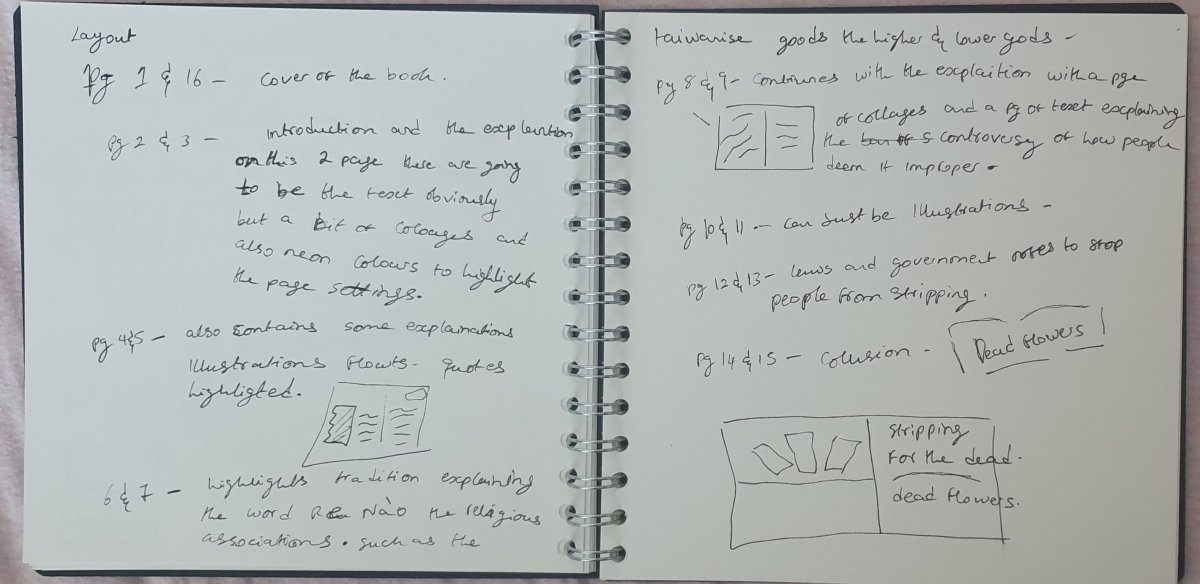 Layout
Pg 1 & 16 – cover of the book.
pg 2 & 3 – introduction and the explaintion
on this 2 page there are going
to be the text obviously
but a bit of coloages and
also neon colours to highlight
the page settings.
pg 4&5 – also contains some explainations
Illustrations flowts. quotes
highligted.
6 & 7 – highlights tradition explaining
the word Re Nào the religious
associations. such as the
taiwanise goods the higher & lower gods –
pg 8 & 9 – continues with the explaition with a pge
of collages and a pg of text explaining
the controversy of how people
deem it improper.
pg 10 & 11 – can just be Illustrations –
pg 12 & 13 – laws and government to stop
people from stripping.
pg 14 & 15 – colusion –
Dead flowers
stripping
For the dead.
dead flowers.